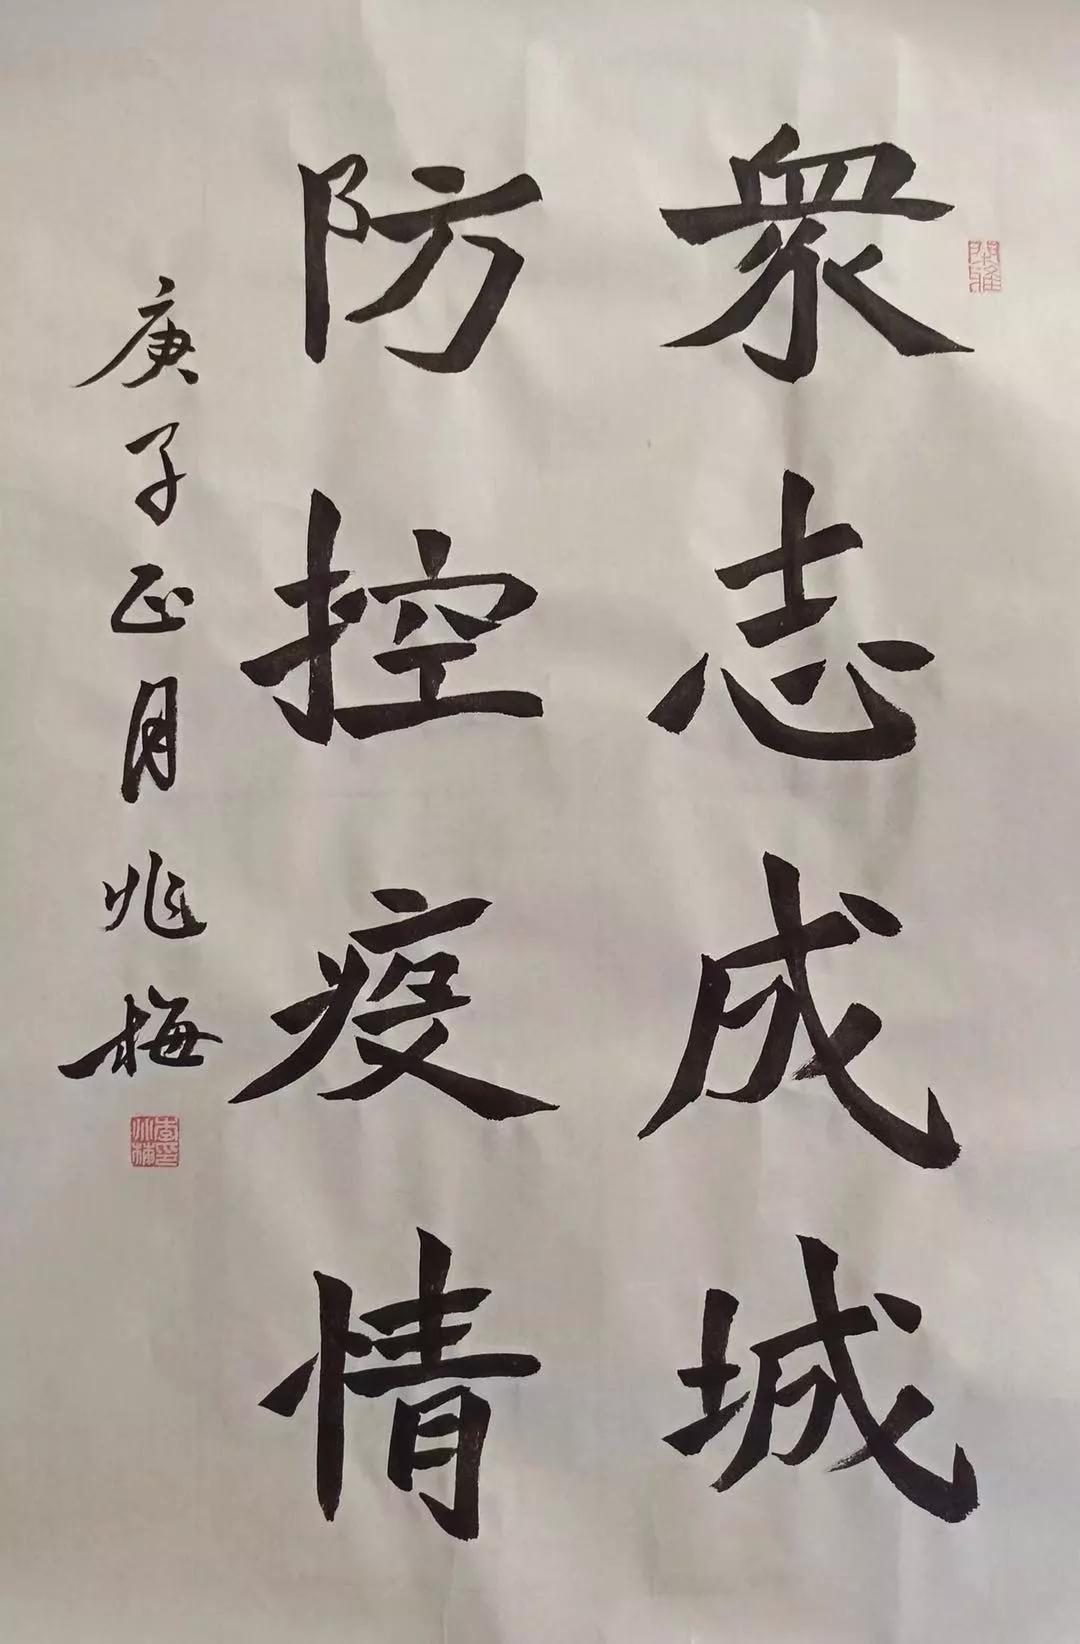 眾志成城
防控疫情
庚子正月兆梅